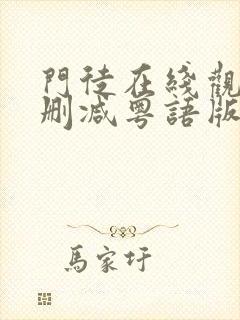 門徒在綫觀
刪減粵語版
馬家圩